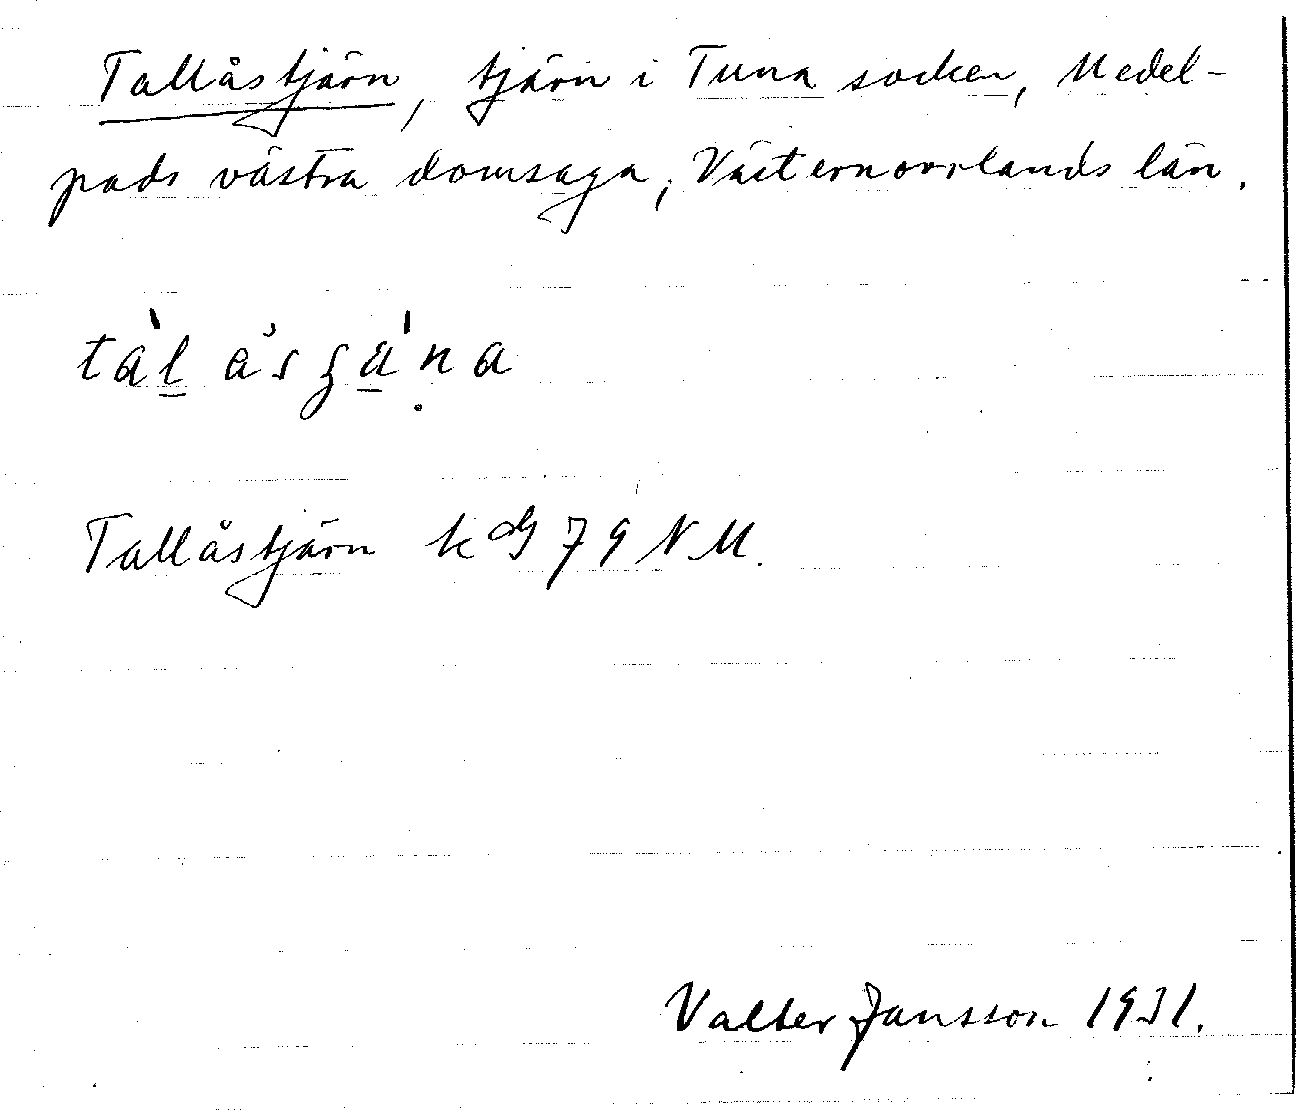 Tallåstjärn, tjärn i Tuna socken, Medel-
pads västra domsaga, Västernorrlands län.
Tallåstjärn k dg 79 NM.
Valter Jansson 1931.